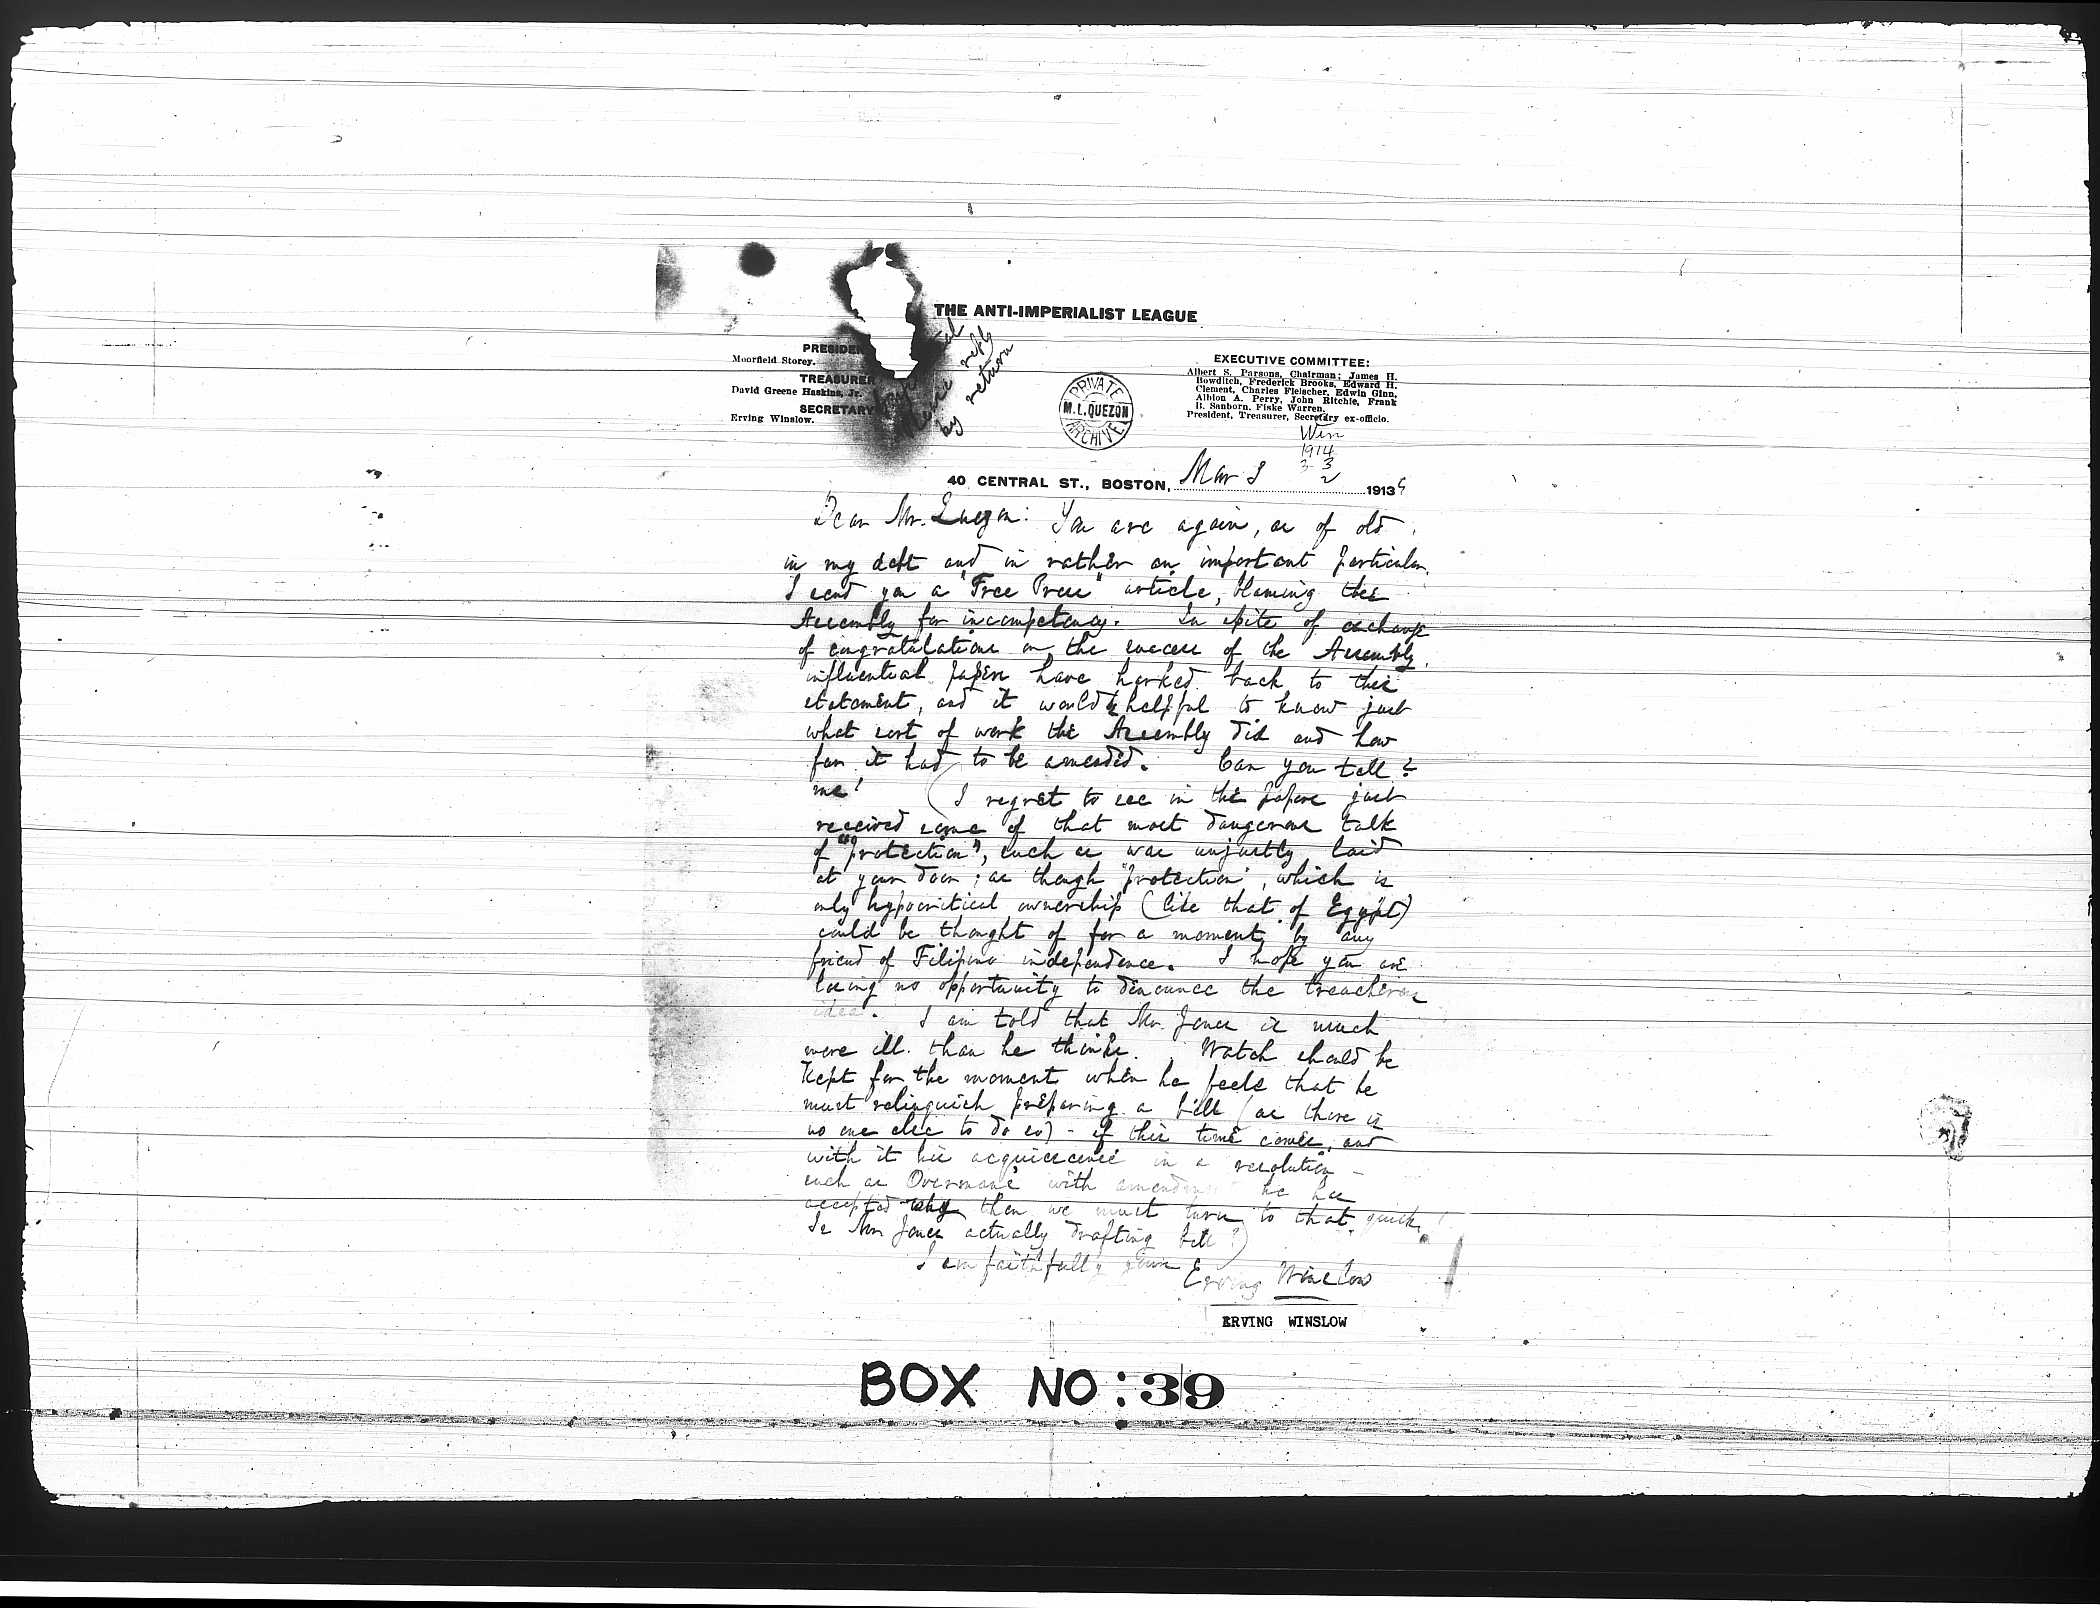 THE ANTI-IMPERIALIST LEAGUE
PRESIDEN
Moorfield Storey.
TREASURER
David Greene Haskins, Jr.
SECRETARY
Erving Winslow.
reply
by return
PRIVATE
M.L.QUEZON
ARCHIVE
EXECUTIVE COMMITTEE:
Albert S. Parsons, Chairman; James H.
Bowditch, Frederick Brooks, Edward H.
Clement, Charles Fleischer, Edwin Ginn,
Albion A. Perry, John Ritchie, Frank
B. Sanborn, Fiske Warren.
President, Treasurer, Secretary ex-officio.
Win
1914
3-3
2
40 CENTRAL ST., BOSTON, Mar 3 1913 4
Dear Mr. Quezon: You are again, as of old,
in my debt and in rather an important particular.
I send you a "Free Press" article, blaming the
Assembly for incompetency. In spite of exchange
of congratulations on the success of the Assembly,
influential papers have harked back to this
statement, and it would be helpful to know just
what sort of work the Assembly did and how
far it had to be amended. Can you tell ?
me? (I regret to see in the papers just
received some of that most dangerous talk
of "protection", such as was unjustly laid
at your door; as though "protection", which is
only hypocritical ownership (like that of Egypt)
could be thought of for a moment by any
friend of Filipino independence. I hope you are
losing no opportunity to denounce the treacherous
idea. I am told that Mr. Jones is much
more ill than he thinks. Watch should be
kept for the moment when he feels that he
must relinquish preparing a bill (as there is
no one else to do so) - if this time comes, and
with it his acquiescence in a resolution -
such as Overman's with amendment he has
accepted why then we must turn to that quick!
Is Mr Jones actually drafting bill?)
I am faithfully yours Erving Winslow
ERVING WINSLOW
BOX NO: 39